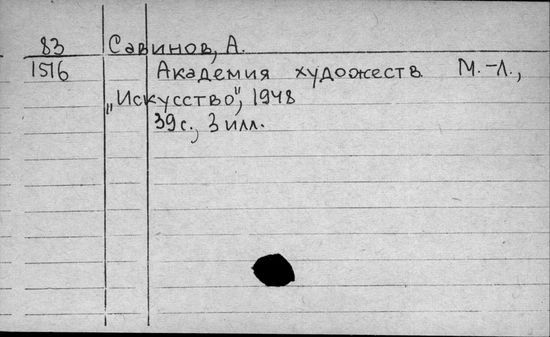 83 Савинов, А.
1516 Академия художеств М.-Л.,
„Искусство", 1948
39с., 3 илл.